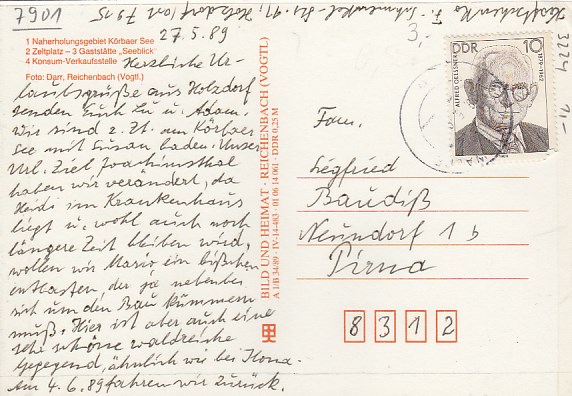 7901
Holzdorf/ort 7915
3,-
3224 1,-
27.5.89
1 Naherholungsgebiet Körbaer See
2 Zeltplatz – 3 Gaststätte „Seeblick“
4 Konsum-Verkaufsstelle
Foto: Darr, Reichenbach (Vogtl.)
Herzliche Ur-
laubsgrüße aus Holzdorf
senden Euch Lu u. Adam.
Wir sind z. Zt. am Körbaer
See mit Susan baden. Unser
Url. Ziel Joachimsthal
haben wir verändert, da
Heidi im Krankenhaus
liegt u. wohl auch noch
längere Zeit bleiben wird,
wollen wir Mario ein bißchen
entlasten, der ja nebenbei
sich um den Bau kümmern
muß. Hier ist aber auch eine
sehr schöne waldreiche
Gegend, ähnlich wie bei Ilona.
Am 4.6.89 fahren wir zurück.
BILD UND HEIMAT · REICHENBACH (VOGTL)
A 1/B 34/89 · IV-14-483 · 01 06 14 061 · DDR 0,25 M
DDR 10
ALFRED OELSSNER
1879-1962
Fam.
Siegfried
Baudiß
Neundorf 1 b
Pirna
8 3 1 2